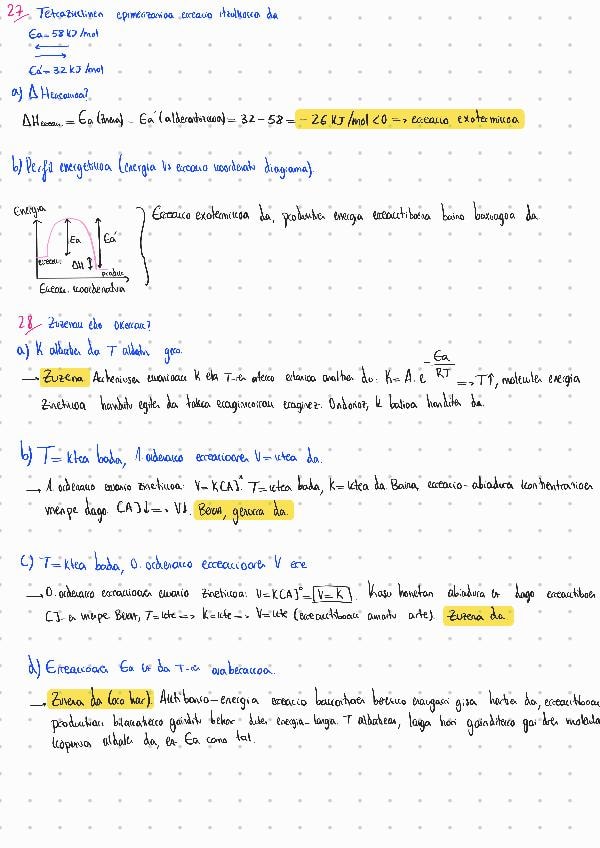 27/ Tetraziklinen epimerizazioa erreakzio itzulkorra da
Ea=58 KJ/mol
Ea'=32 KJ/mol
a) ΔHerreakzioa?
ΔHerreak. = Ea (zuzena) - Ea' (alderantzizkoa) = 32-58 = -26 KJ/mol <0 => erreakzio exotermikoa
b) Perfil energetikoa (energia vs erreakzio koordenatu diagrama).
Energia
Ea
Ea'
erreak.
ΔH
produk.
Erreak. koordenatua
Erreakzio exotermikoa da, produktuen energia erreaktiboena baino baxuagoa da.
28/ Zuzena edo okerra?
a) K aldatzen da T aldatu gero.
→ Zuzena Arrheniusen ekuazioak K eta T-ren arteko erlazioa da: K = A. e^-Ea/RT => T↑, molekulen energia
zinetikoa handitu egiten da talka eraginkorrak eraginez. Ondorioz, k balioa handitu da.
b) T = ktea bada, 1. ordenako erreakzioaren V = ktea da.
→ 1. ordenako ekuazio zinetikoa: V=K[A]¹ T=ktea bada, K=ktea da. Baina, erreakzio-abiadura kontzentrazioaren
menpe dago. [A]↓ => V↓. Beraz, gezurra da.
c) T = ktea bada, 0. ordenako erreakzioaren V ere
→ 0. ordenako erreakzioaren ekuazio zinetikoa: V=K[A]⁰=V=K. Kasu honetan abiadura ez dago erreaktiboen
[]-a menpe Beraz, T=kte → K=kte → V=kte (erreaktiboak amaitu arte). Zuzena da.
d) Erreakzioaren Ea ez da T-ren araberakoa.
→ Zuzena da (oso har). Aktibazio-energia erreakzio bakoitzaren berezko ezaugarri gisa hartzen da, erreaktiboak
produktuan bilakatzeko gainditu behar duten energia-langa. T aldatzean, langa hori gainditzeko gai diren molekula
kopurua aldatu da, ez Ea como tal.